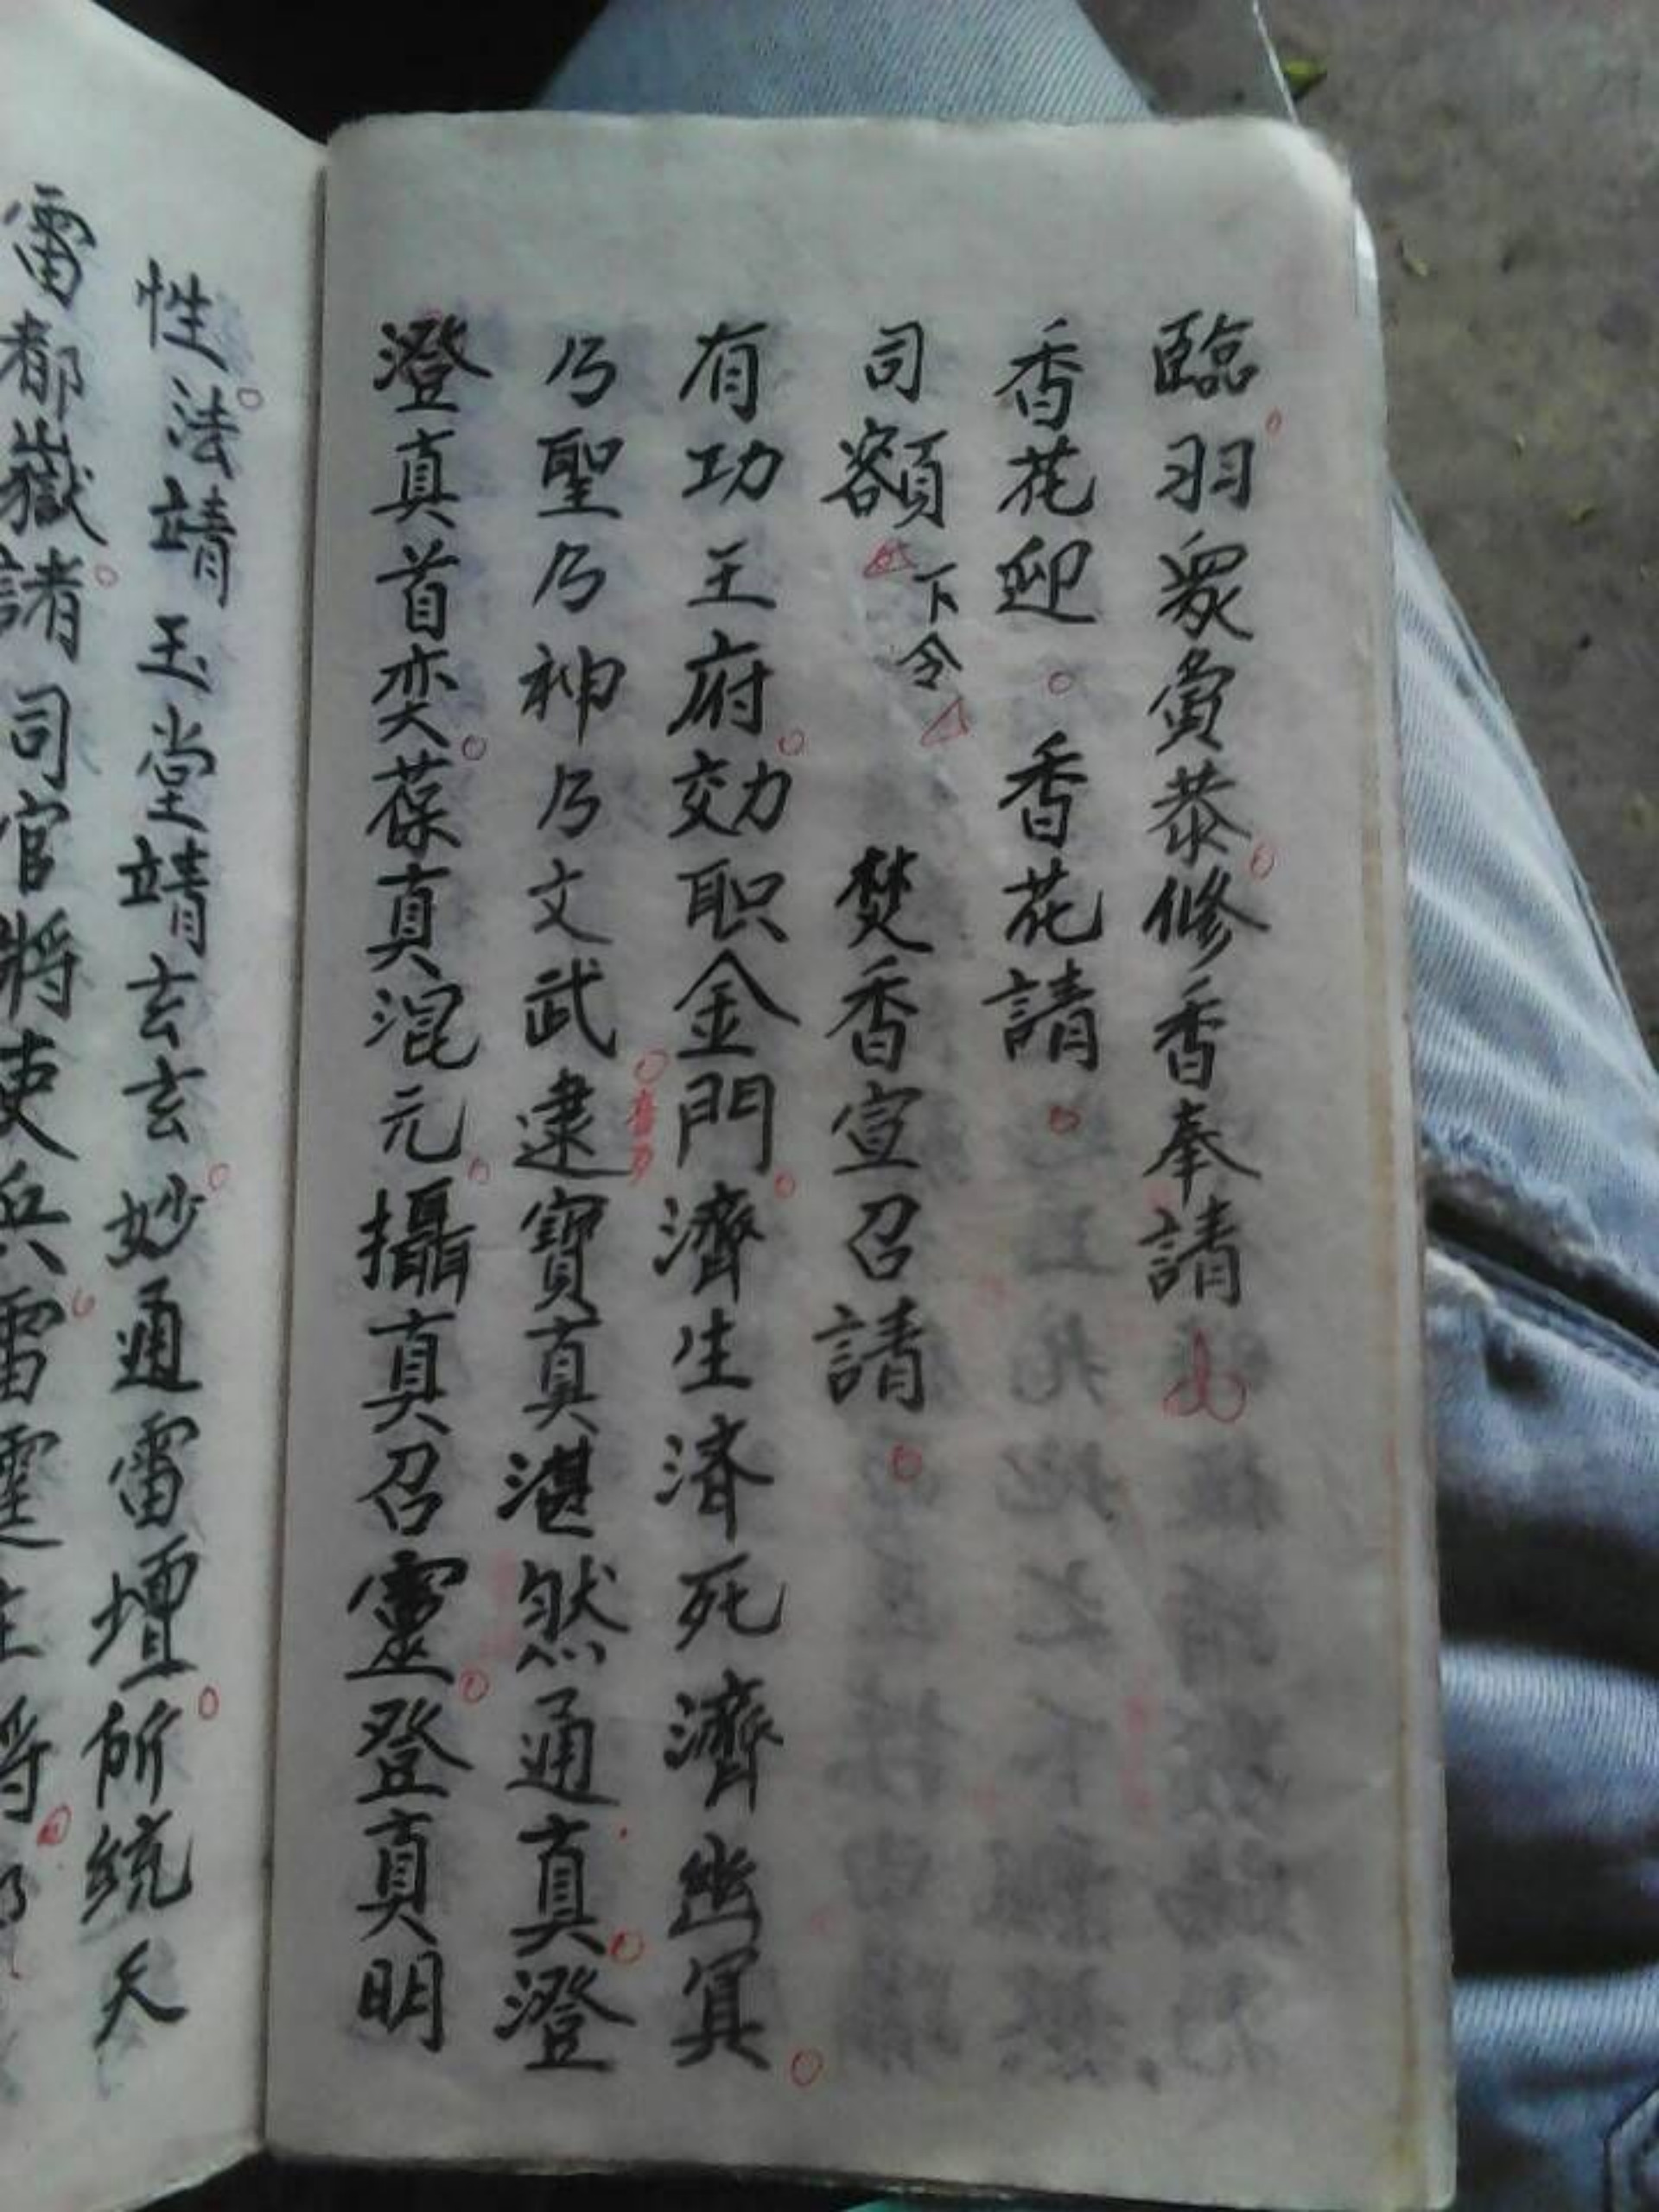 臨羽衆賓恭修香奉請
香花迎香花請
司額下令 焚香宣召請
有功王府効职金門濟生済死濟幽冥
乃聖乃神乃文武逮寶真湛然通真澄
澄真首奕葆真混元攝真召靈登真明
性法靖玉堂靖玄玄妙通雷壇所統天
雷都嶽諸司官將吏兵雷霆主将